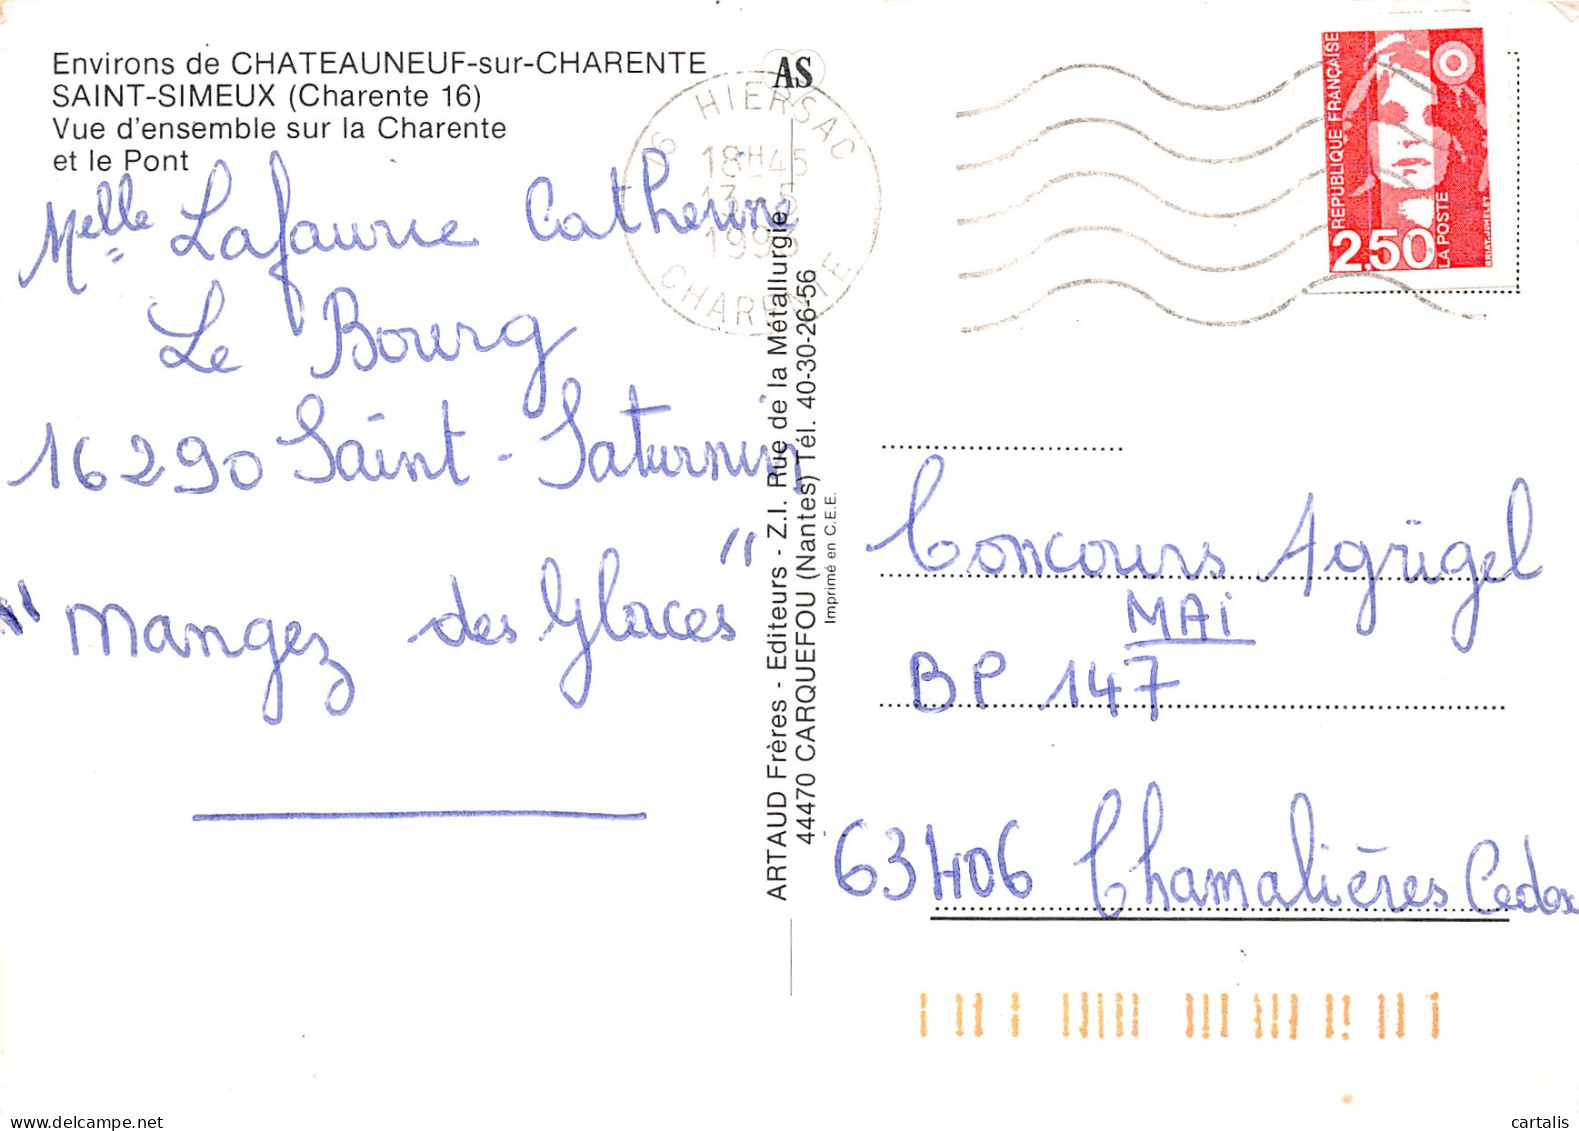 Environs de CHATEAUNEUF-sur-CHARENTE
SAINT-SIMEUX (Charente 16)
Vue d'ensemble sur la Charente
et le Pont
Melle Lafaurie Catherine
Le Bourg
16290 Saint-Saturnin
"Mangez des Glaces"
AS
16 HIERSAC
18H45
13-5
CHARENTE
ARTAUD Frères - Editeurs - Z.I. Rue de la Métallurgie
44470 CARQUEFOU (Nantes) Tél. 40-30-26-56
Imprimé en C.E.E.
REPUBLIQUE FRANÇAISE
2,50
LA POSTE
BRIAT-JUMELET
Concours Agrigel
MAi
BP 147
63406 Chamalières Cedex
cartalis www.delcampe.net